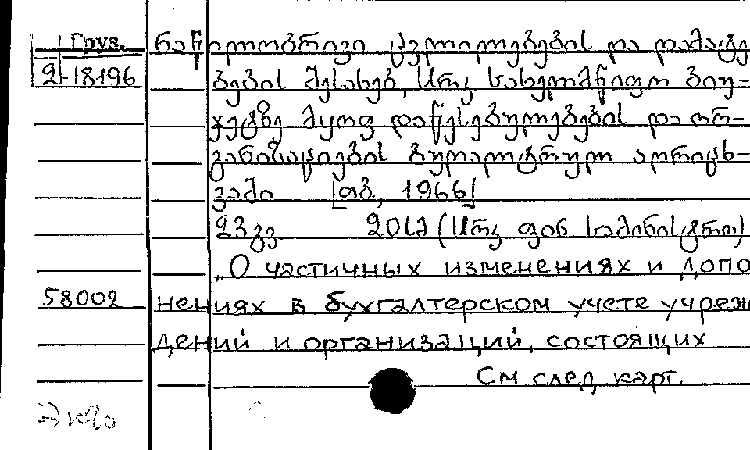 Груз. ნაწილობრივი ცვლილებების და დამატე
2-18196 ბების შესახებ, სსრკ სახელმწიფო ბიუ-
ჯეტზე მყოფ დაწესებულებების და ორ-
განიზაციების ბუღალტრულ აღრიცხ-
ვაში [თბ, 1966]
23 გვ 20 (სსრკ ფინ სამინისტრო)
„О частичных изменениях и допо
58002 нениях в бухгалтерском учете учреж
дений и организаций, состоящих
См след карт.